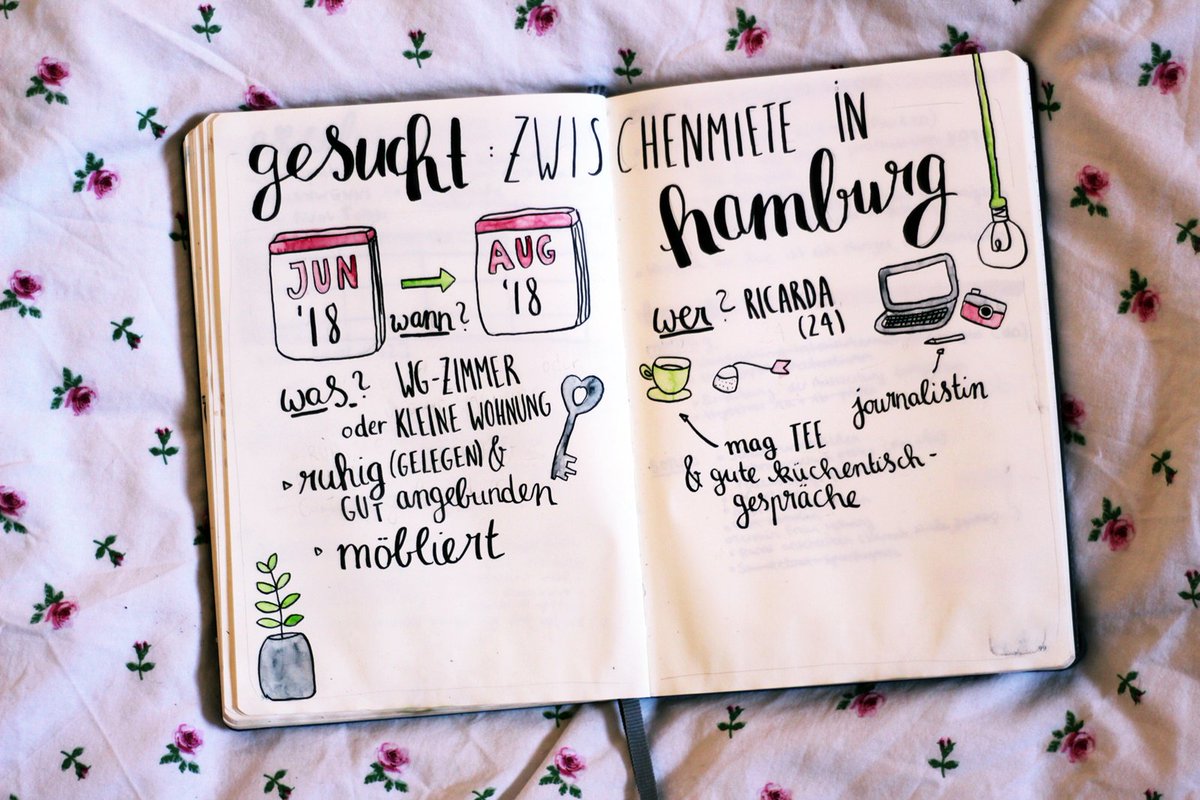 gesucht: ZWISCHENMIETE IN
hamburg
JUN
'18
wann?
AUG
'18
was? WG-ZIMMER
oder KLEINE WOHNUNG
ruhig (GELEGEN) &
GUT angebunden
möbliert
wer? RICARDA
(24)
journalistin
mag TEE
& gute küchentisch-
gespräche
99